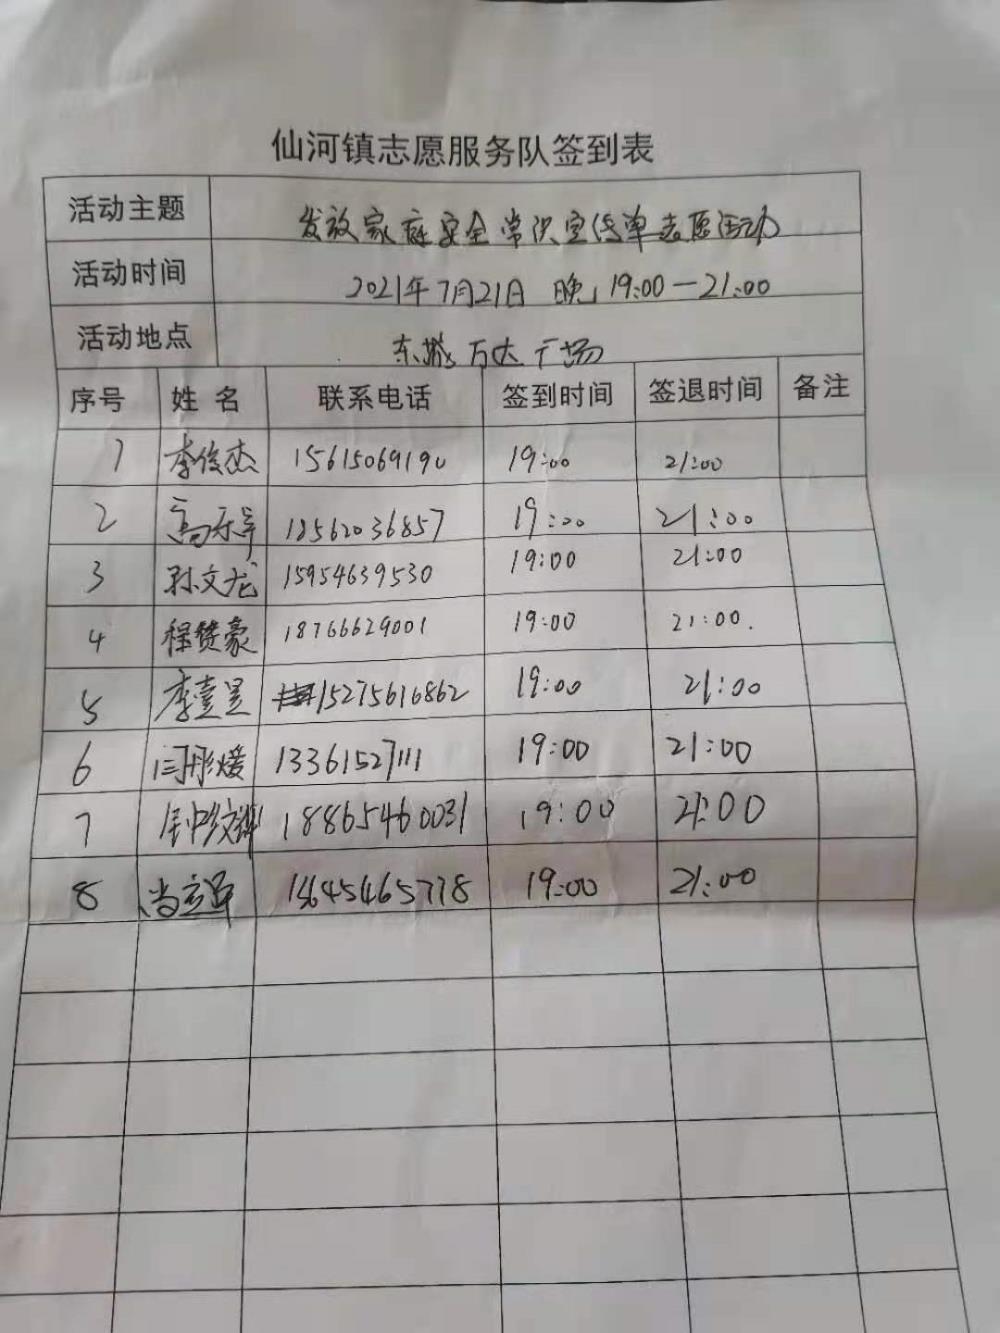 仙河镇志愿服务队签到表
活动主题 发放家庭安全常识宣传单志愿活动
活动时间 2021年7月21日 晚 19:00-21:00
活动地点 东城万达广场
序号 姓名 联系电话 签到时间 签退时间 备注
1 李俊杰 15615069190 19:00 21:00
2 18562036857 19:00 21:00
3 孙文龙 15954639530 19:00 21:00
4 程赞豪 18766629001 19:00 21:00.
5 15275616862 19:00 21:00
6 闫彤煖 13361527111 19:00 21:00
7 18865460031 19:00 21:00
8 19:00 21:00